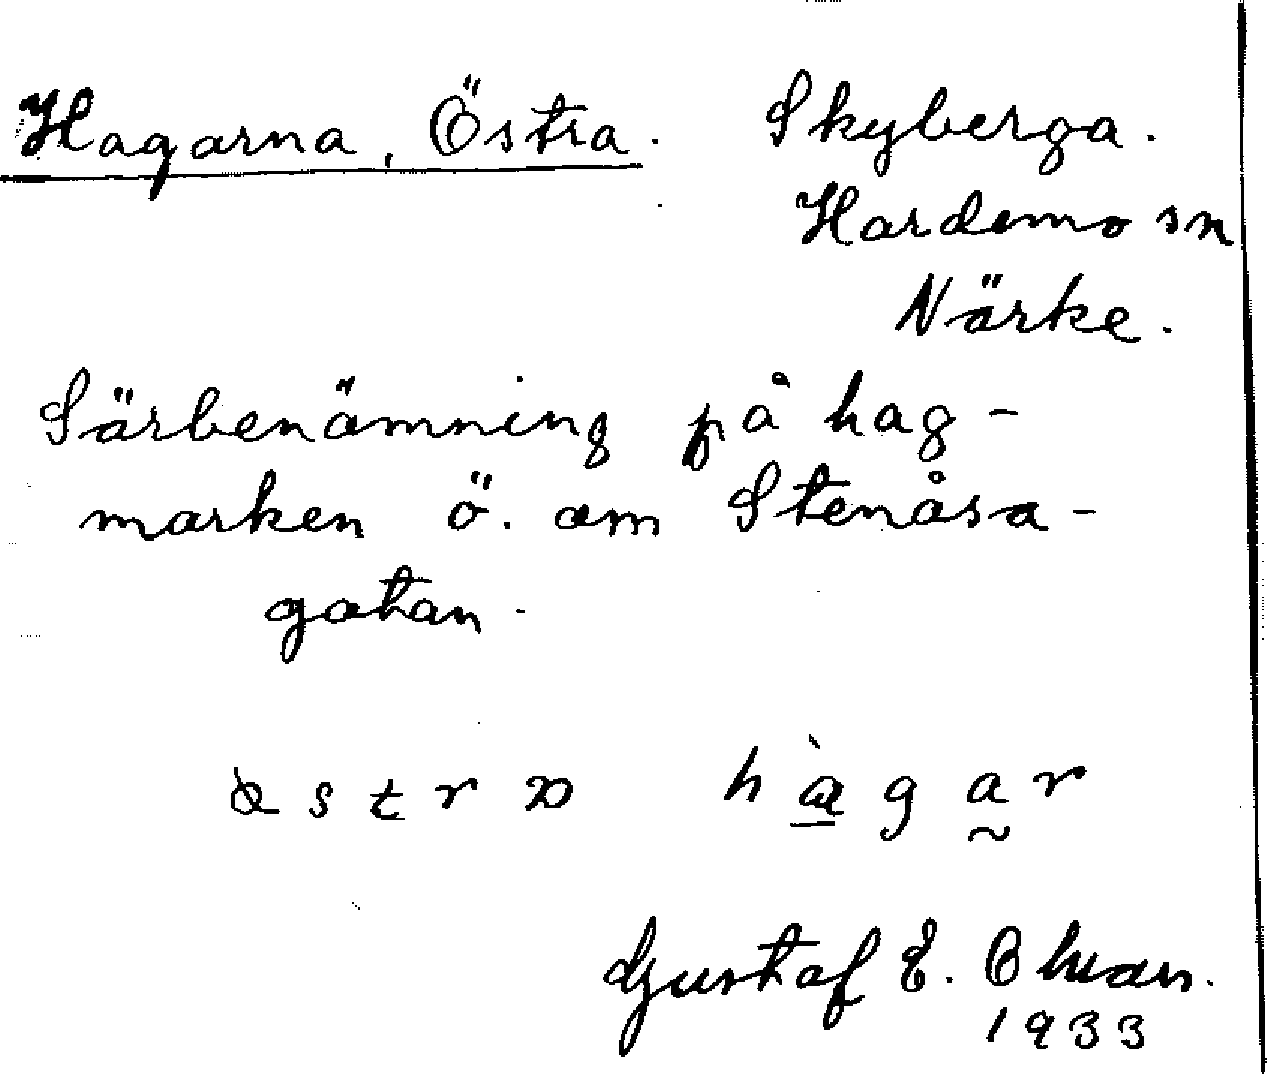 Hagarna, Östra. Skyberga.
Hardemo sn
Närke.
Särbenämning på hag-
marken ö. om Stenåsa-
gatan.
hàgar
Gustaf E.
1933